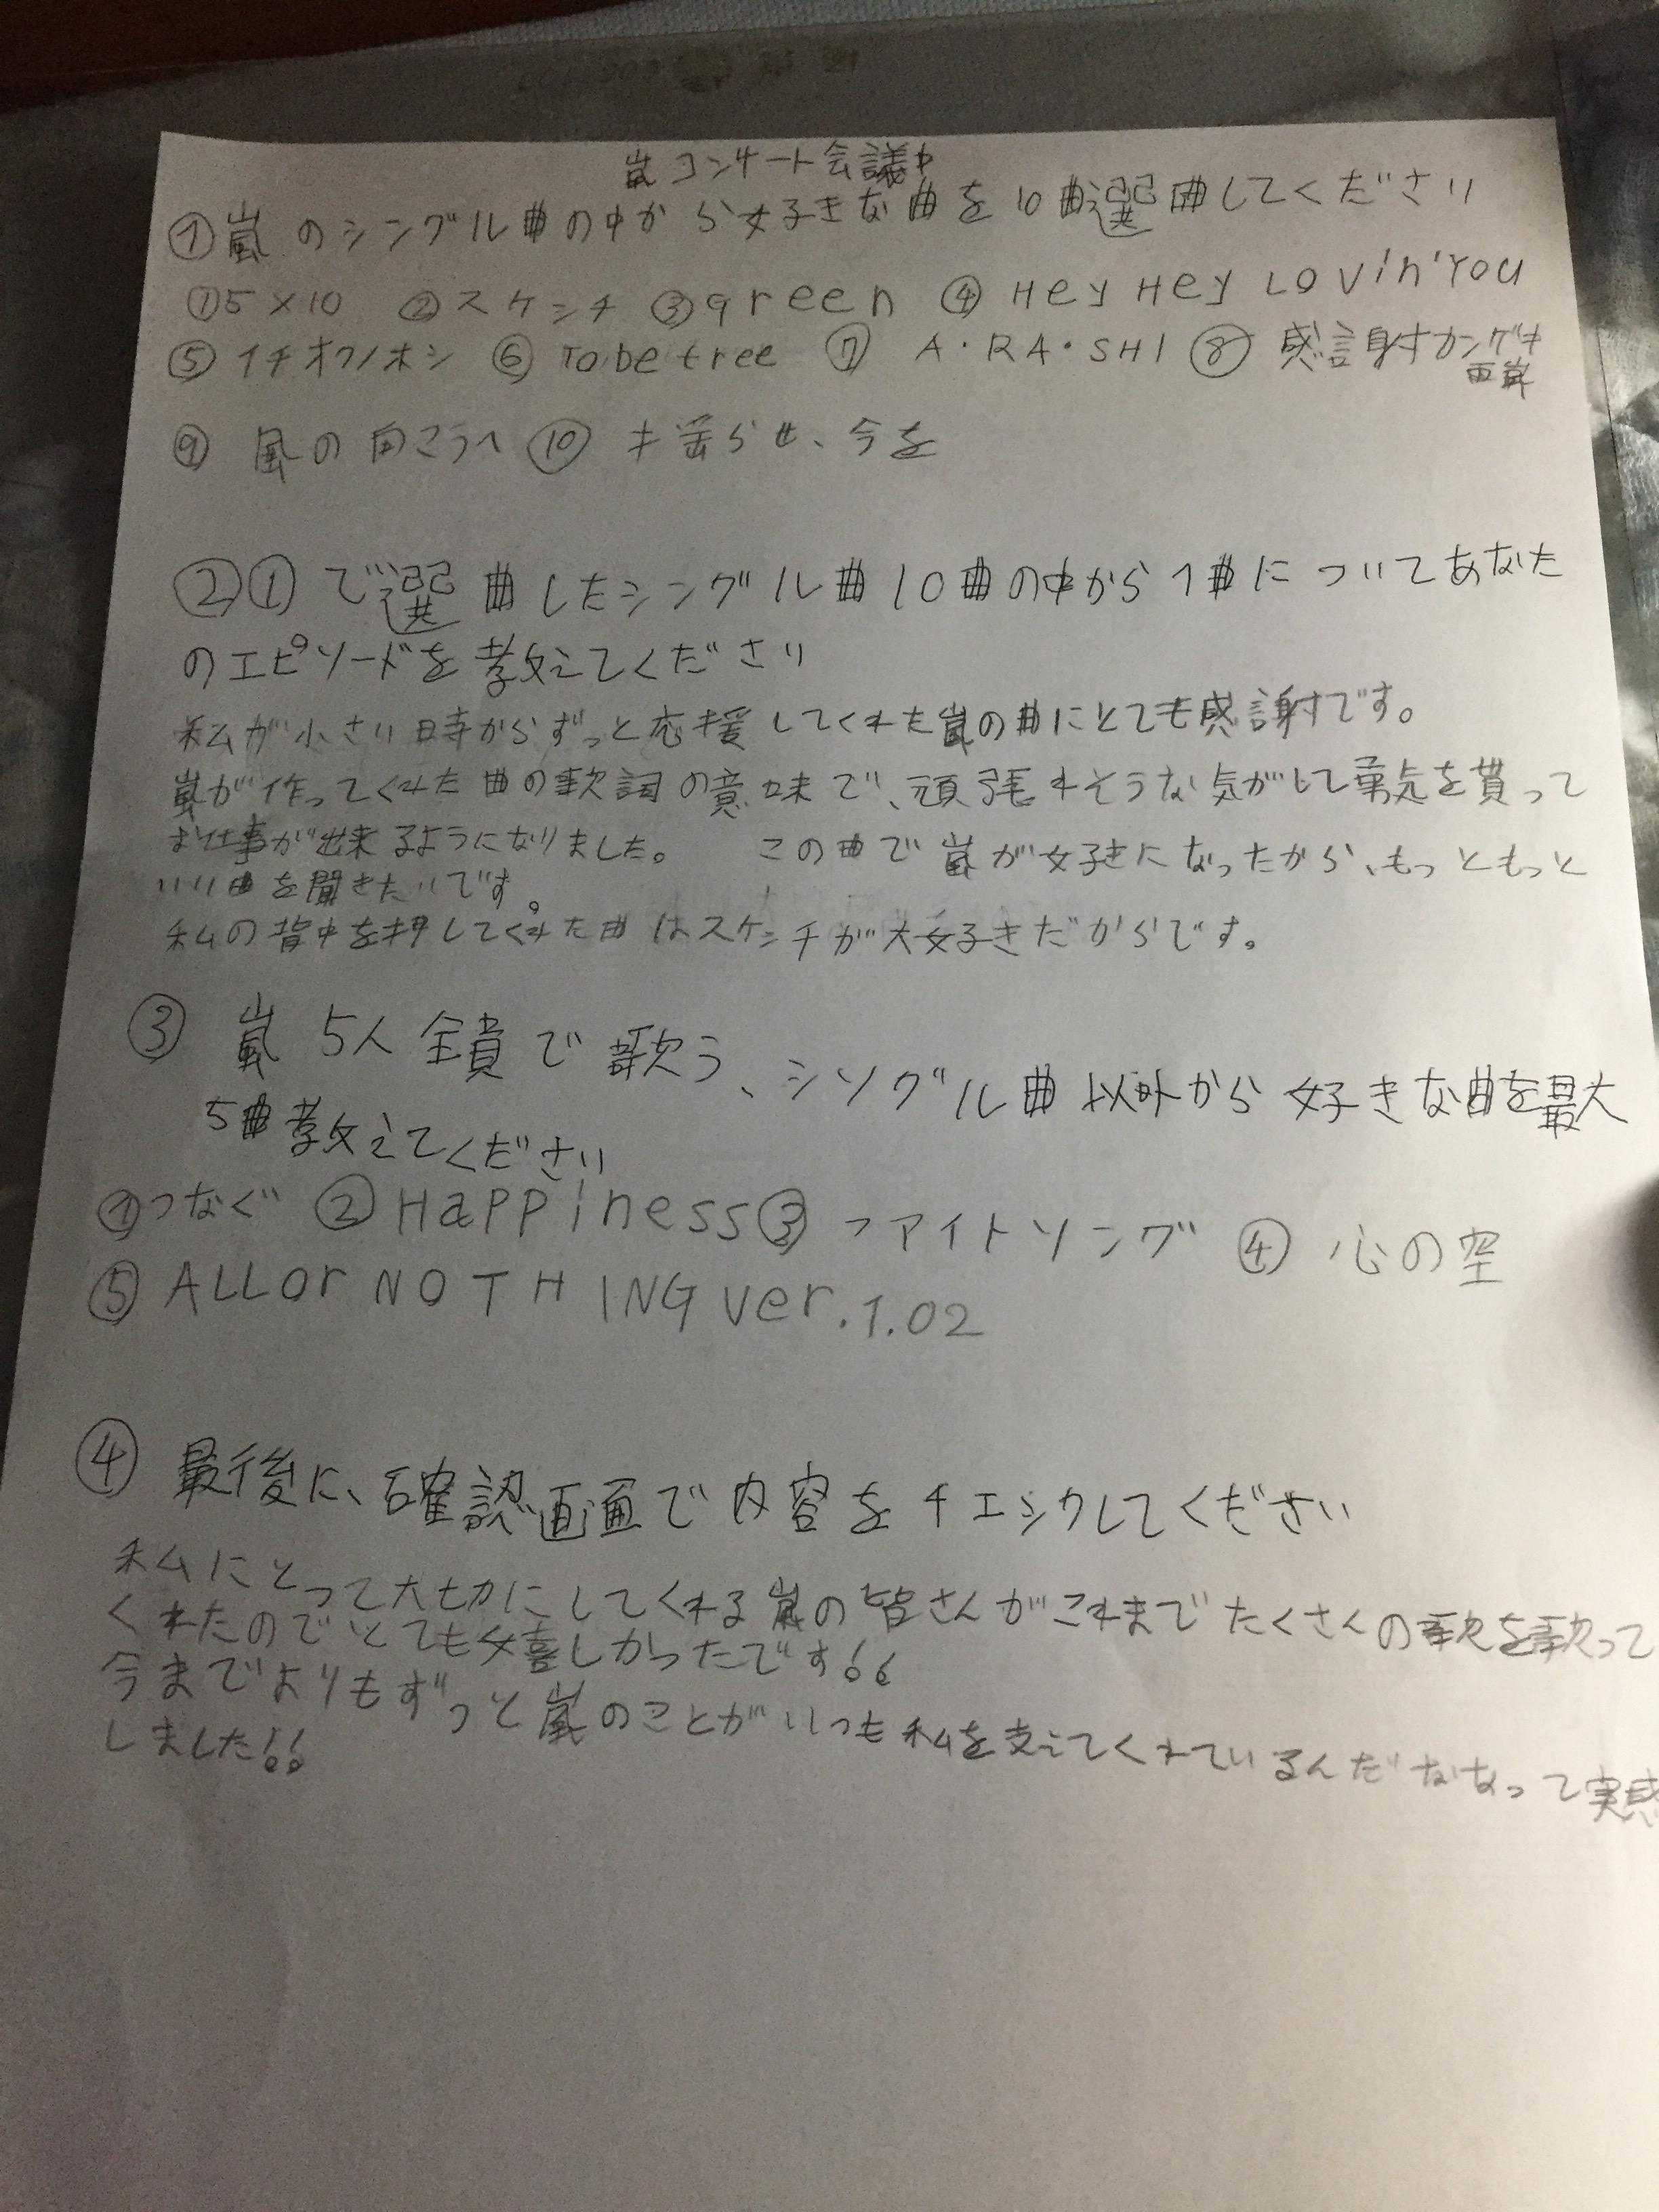 嵐コンサート会議中
①嵐のシングル曲の中から好きな曲を10曲選曲してください
①5×10 ②スケッチ ③green ④Hey Hey Lovin'You
⑤イチオクノホシ ⑥To be free ⑦A・RA・SHI ⑧感謝カンゲキ
雨嵐
⑨風の向こうへ ⑩揺らせ、今を
②①で選曲したシングル曲10曲の中から1曲についてあなた
のエピソードを教えてください
私が小さい時からずっと応援してくれた嵐の曲にとても感謝です。
嵐が作ってくれた曲の歌詞の意味で、頑張れそうな気がして勇気を貰って
お仕事が出来るようになりました。 この曲で嵐が好きになったから、もっともっと
いい曲を聞きたいです。
私の背中を押してくれた曲はスケッチが大好きだからです。
③嵐5人全員で歌う、シングル曲以外から好きな曲を最大
5曲教えてください
①つなぐ ②Happiness ③ファイトソング ④心の空
⑤ALL or NOTHING ver.1.02
④最後に、確認画面で内容をチェックしてください
私にとって大切にしてくれる嵐の皆さんがこれまでたくさんの歌を歌って
くれたのでとても嬉しかったです!!
今までよりもずっと嵐のことがいつも私を支えてくれているんだななって実感
しました!!